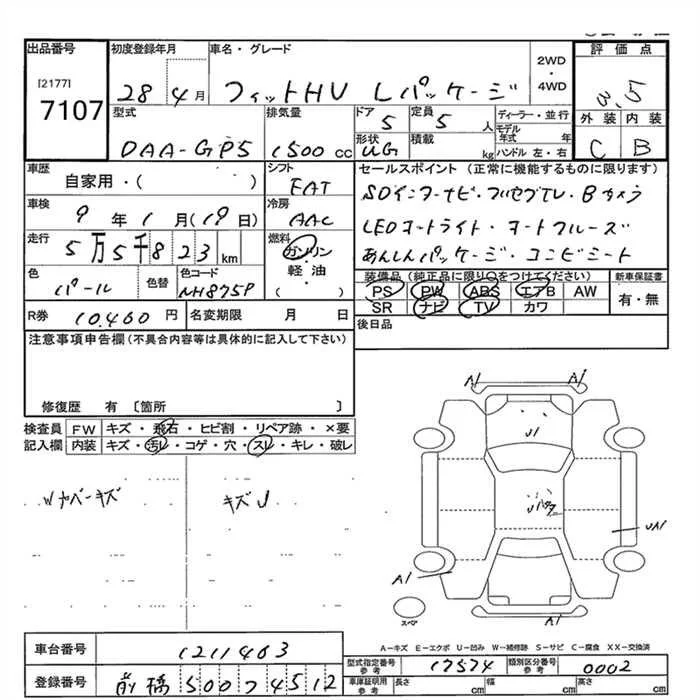 出品番号 初度登録年月 車名・グレード 評価点
[2177] 2WD
7107 28 4月 フィットHV Lパッケージ ・ 3.5
4WD
型式 排気量 ドア 定員 ディーラー・並行 外装 内装
5 5人 モデル年式 年
DAA-GP5 1500cc 形状 積載 C B
UG kg ハンドル 左・右
車歴 シフト セールスポイント (正常に機能するものに限ります)
自家用・( ) FAT SDインターナビ・フルセグTV・Bカメラ
車検 冷房
9年1月(19日) AAC LEDヘッドライト・オートクルーズ
走行 燃料
5万5千823km ガソリン あんしんパッケージ・コンビシート
色 色替 色コード ・軽油 装備品(純正品に限り○をつけてください) 新車保証書
パール NH875P ・( ) PS PW ABS エアB AW 有・無
SR ナビ TV カワ
R券 10,460円 名変期限 月 日 後日品
注意事項申告欄(不具合内容等は具体的に記入して下さい)
修復歴 有 〔箇所 〕
検査員 FW キズ・飛石・ヒビ割・リペア跡・×要
記入欄 内装 キズ・汚レ・コゲ・穴・スレ・キレ・破レ
A1 A1
U1
Wカバーキズ キズU
UA1
A1
スペア A1
A-キズ E-エクボ U-凹み W-補修跡 S-サビ C-腐食 XX-交換済
車台番号 1211403
型式指定番号 参考 17574 類別区分番号 参考 0002
登録番号 前橋500ソ4512
車庫証明用 参考 長さ cm 幅 cm 高さ cm